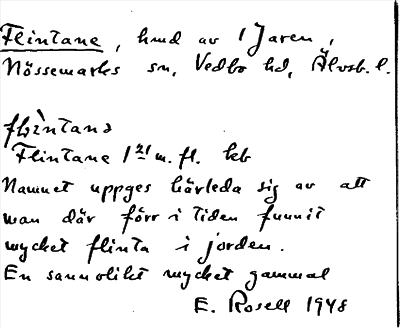 Flintane, hmd av 1 Jaren,
Nössemarks sn, Vedbo hd, Älvsb. l.
fli̇̀ntanə
Flintane 1 21 m. fl. kb
Namnet uppges härleda sig av att
man där förr i tiden funnit
mycket flinta i jorden.
En sannolikt mycket gammal
E. Rosell 1948